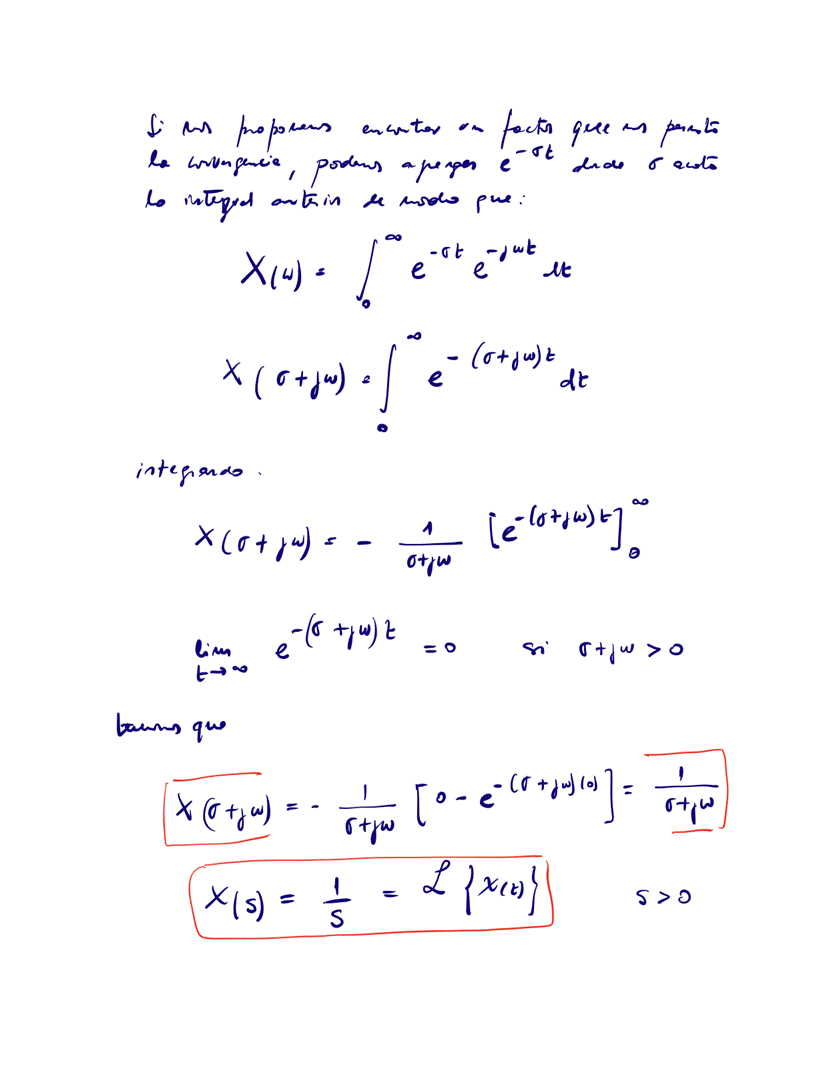 Si nos proponemos encontrar un factor que nos permita
la convergencia, podemos agregar e^{-σt} donde σ acota
la integral anterior de modo que:
X(ω) = ∫_0^∞ e^{-σt} e^{-jωt} dt
X(σ+jω) = ∫_0^∞ e^{-(σ+jω)t} dt
integrando.
X(σ+jω) = - 1/(σ+jω) [e^{-(σ+jω)t}]_0^∞
lim_{t→∞} e^{-(σ+jω)t} = 0 si σ+jω > 0
tenemos que
X(σ+jω) = - 1/(σ+jω) [0 - e^{-(σ+jω)(0)}] = 1/(σ+jω)
X(s) = 1/s = ℒ{x(t)} s > 0